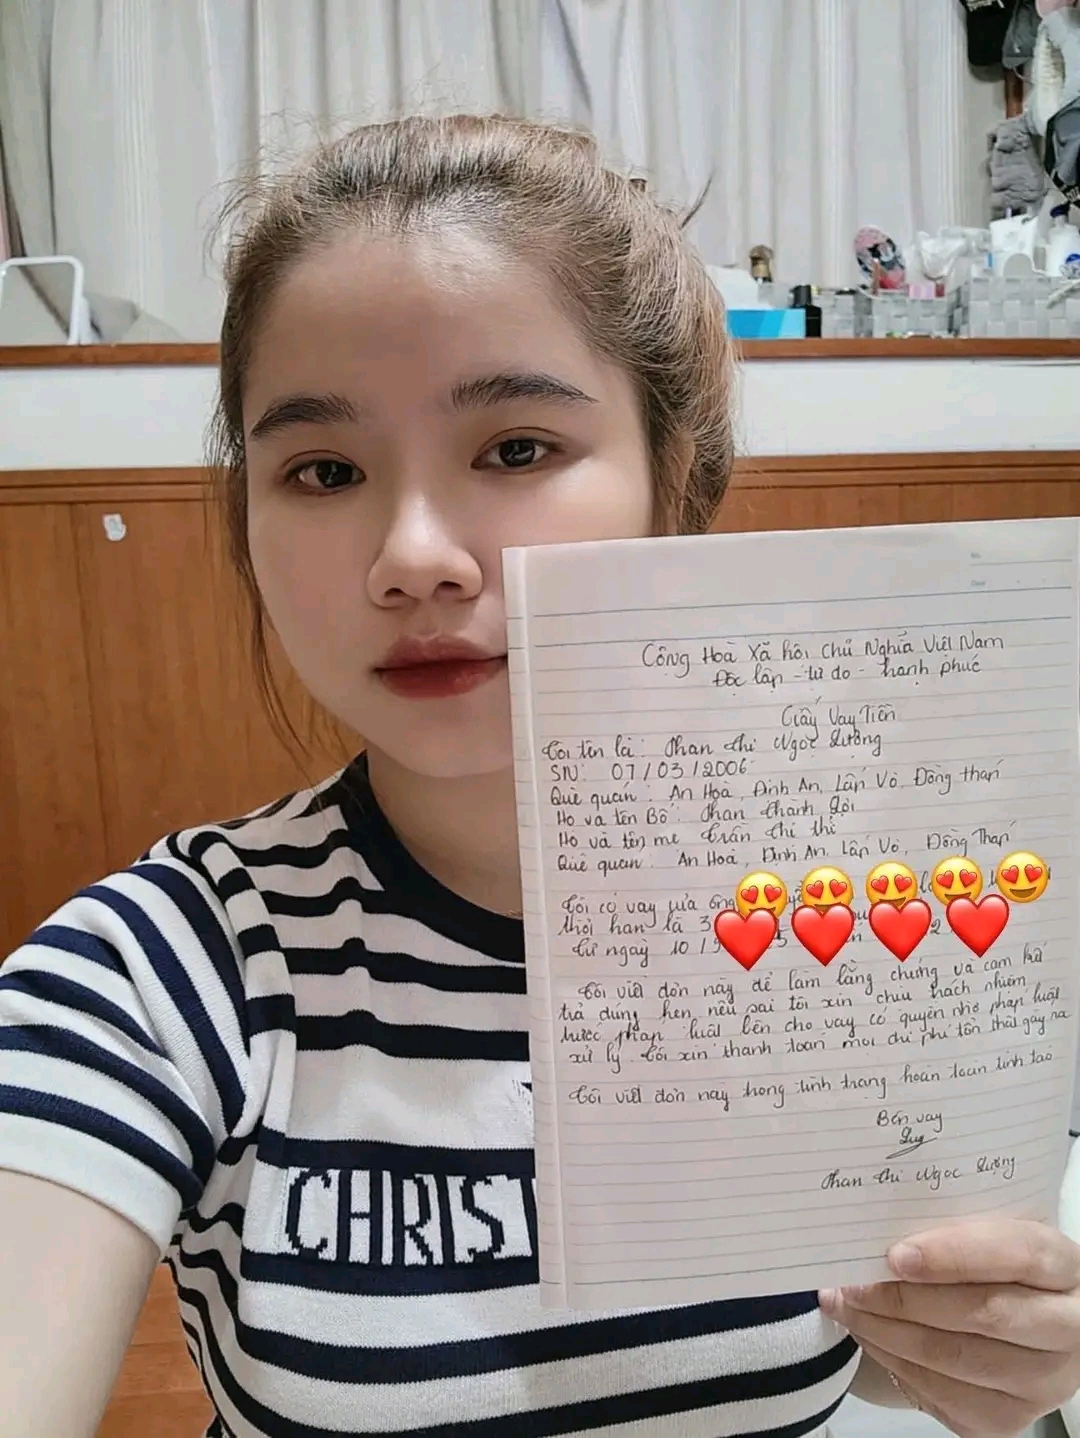 Cộng Hoà Xã hôi Chủ Nghĩa Việt Nam
Độc lập - tự do - hạnh phúc
Giấy Vay Tiền
Tôi tên là: Phan Thi Ngọc Lượng
SN: 07/03/2006
Quê quán: An Hoà, Đinh An, Lấp Vò, Đồng tháp
Họ và tên Bố: Phan Thành Lợi
Họ và tên mẹ Trần Thi thi
Quê quan: An Hoà, Đinh An, Lấp Vò, Đồng Tháp
Tôi có vay của ông
thời hạn là 3
Từ ngày 10/
Tôi viết đơn này để làm bằng chứng và cam kết
trả đúng hẹn nếu sai tôi xin chịu trách nhiệm
trước pháp luật bên cho vay có quyền nhờ pháp luật
xử lý. Tôi xin thanh toán mọi chi phí tổn thất gây ra
Tôi viết đơn này trong tình trạng hoàn toàn tỉnh táo
Bên vay
Phan Thi Ngọc Lượng
CHRIST